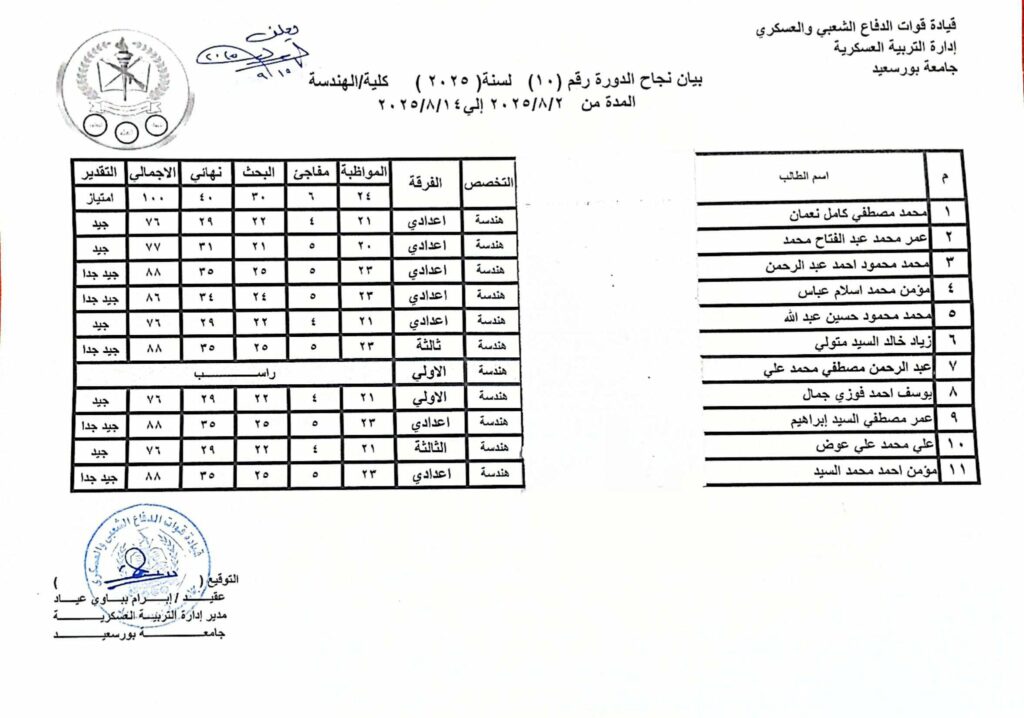 قيادة قوات الدفاع الشعبي والعسكري
إدارة التربية العسكرية
جامعة بورسعيد
يعلن
٢٠٢٥
٩/١٥
بيان نجاح الدورة رقم (١٠) لسنة( ٢٠٢٥ ) كلية/الهندسة
المدة من ٢٠٢٥/٨/٢ إلي٢٠٢٥/٨/١٤
م اسم الطالب التخصص الفرقة المواظبة مفاجئ البحث نهائي الاجمالي التقدير
٢٤ ٦ ٣٠ ٤٠ ١٠٠ امتياز
١ محمد مصطفي كامل نعمان هندسة اعدادي ٢١ ٤ ٢٢ ٢٩ ٧٦ جيد
٢ عمر محمد عبد الفتاح محمد هندسة اعدادي ٢٠ ٥ ٢١ ٣١ ٧٧ جيد
٣ محمد محمود احمد عبد الرحمن هندسة اعدادي ٢٣ ٥ ٢٥ ٣٥ ٨٨ جيد جدا
٤ مؤمن محمد اسلام عباس هندسة اعدادي ٢٣ ٥ ٢٤ ٣٤ ٨٦ جيد جدا
٥ محمد محمود حسين عبد الله هندسة اعدادي ٢١ ٤ ٢٢ ٢٩ ٧٦ جيد
٦ زياد خالد السيد متولي هندسة ثالثة ٢٣ ٥ ٢٥ ٣٥ ٨٨ جيد جدا
٧ عبد الرحمن مصطفي محمد علي هندسة الاولي راســـــب
٨ يوسف احمد فوزي جمال هندسة الاولي ٢١ ٤ ٢٢ ٢٩ ٧٦ جيد
٩ عمر مصطفي السيد إبراهيم هندسة اعدادي ٢٣ ٥ ٢٥ ٣٥ ٨٨ جيد جدا
١٠ علي محمد علي عوض هندسة الثالثة ٢١ ٤ ٢٢ ٢٩ ٧٦ جيد
١١ مؤمن احمد محمد السيد هندسة اعدادي ٢٣ ٥ ٢٥ ٣٥ ٨٨ جيد جدا
قيادة قوات الدفاع الشعبي والعسكري
التوقيع ( )
عقيـــد / إبـــرام ببـاوي عيـاد
مدير إدارة التربيـة العسكريـــة
جامعـــــــة بورسعيـــــد